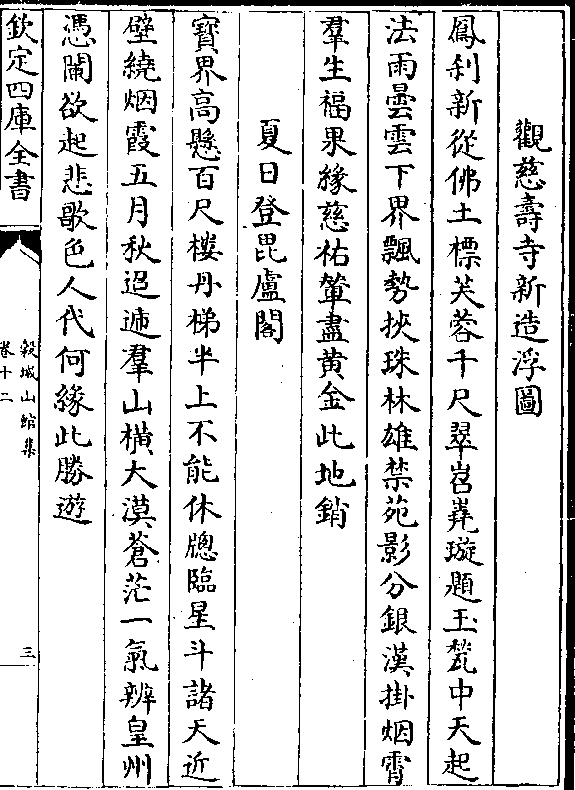 觀慈壽寺新造浮圖
鳳刹新從佛土標芙蓉千尺翠岧嶤璇題玉甃中天起
法雨曇雲下界飄勢挾珠林雄禁苑影分銀漢掛烟霄
羣生福果緣慈祐輦盡黄金此地銷
夏日登毘盧閣
寳界髙懸百尺樓丹梯半上不能休牕臨星斗諸天近
壁繞烟霞五月秋迢遞羣山横大漠蒼茫一氣辨皇州
憑闌欲起悲歌色人代何緣此勝遊
欽定四庫全書
榖城山館集
卷十二
三